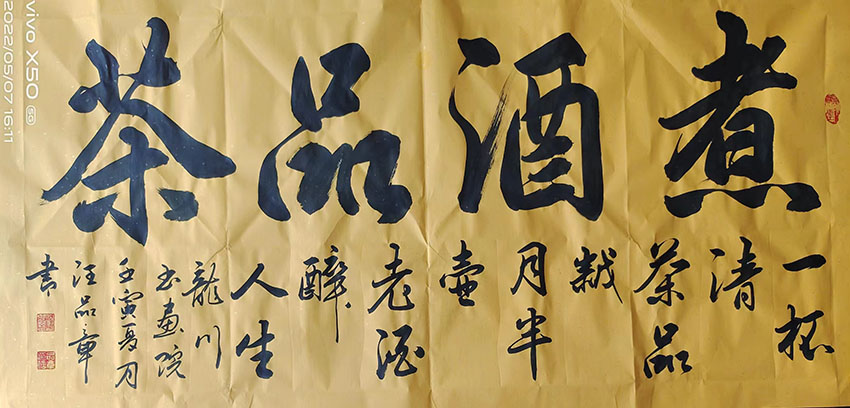 煮酒品茶
一杯
清
茶品
月半
壷
老酒
醉
人生
龍川
书畫院
壬寅夏月
汪品章
書
vivo X50 5G
2022/05/07 16:11